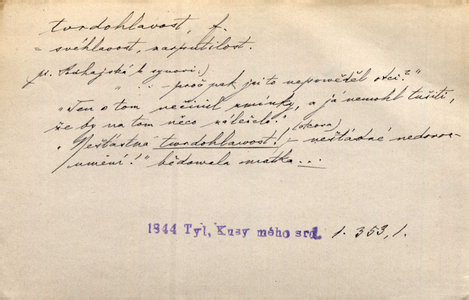 tvrdohlavost, f.
= svéhlavost, zarputilost.
(p. Podhajská k synovi.)
" - - proč pak jsi to nepověděl otci?"
"Ten o tom nečinil zmínky, a já nemohl tušiti,
že by na tom něco záleželo."
"Nešťastná tvrdohlavost! (otcova) - nešťastné nedoroz-
umění!" bědovala matka...
1844 Tyl, Kusy mého srd. 1. 353, 1.